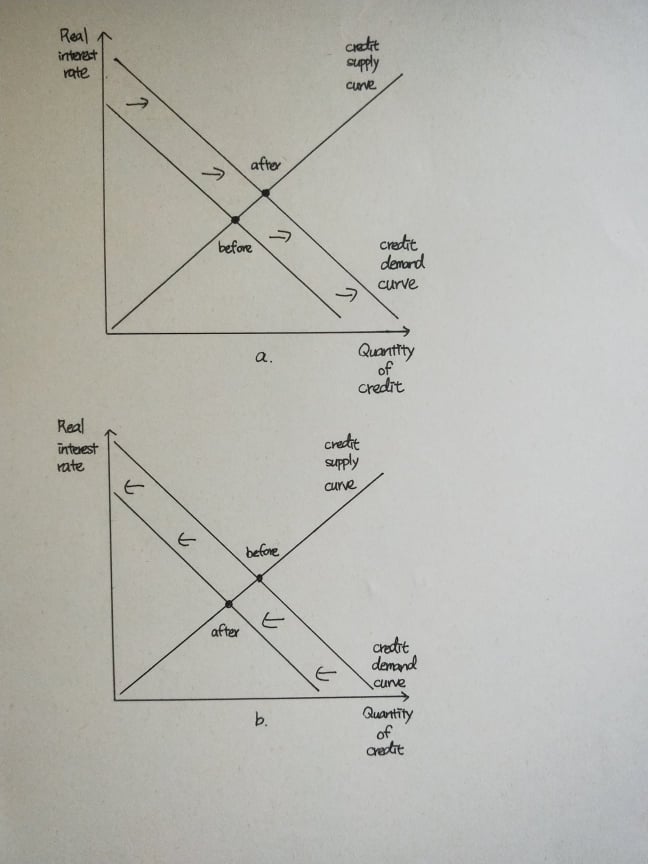 Real
interest
rate
credit
supply
curve
after
before
credit
demand
curve
Quantity
of
credit
a.
Real
interest
rate
credit
supply
curve
before
after
credit
demand
curve
Quantity
of
credit
b.